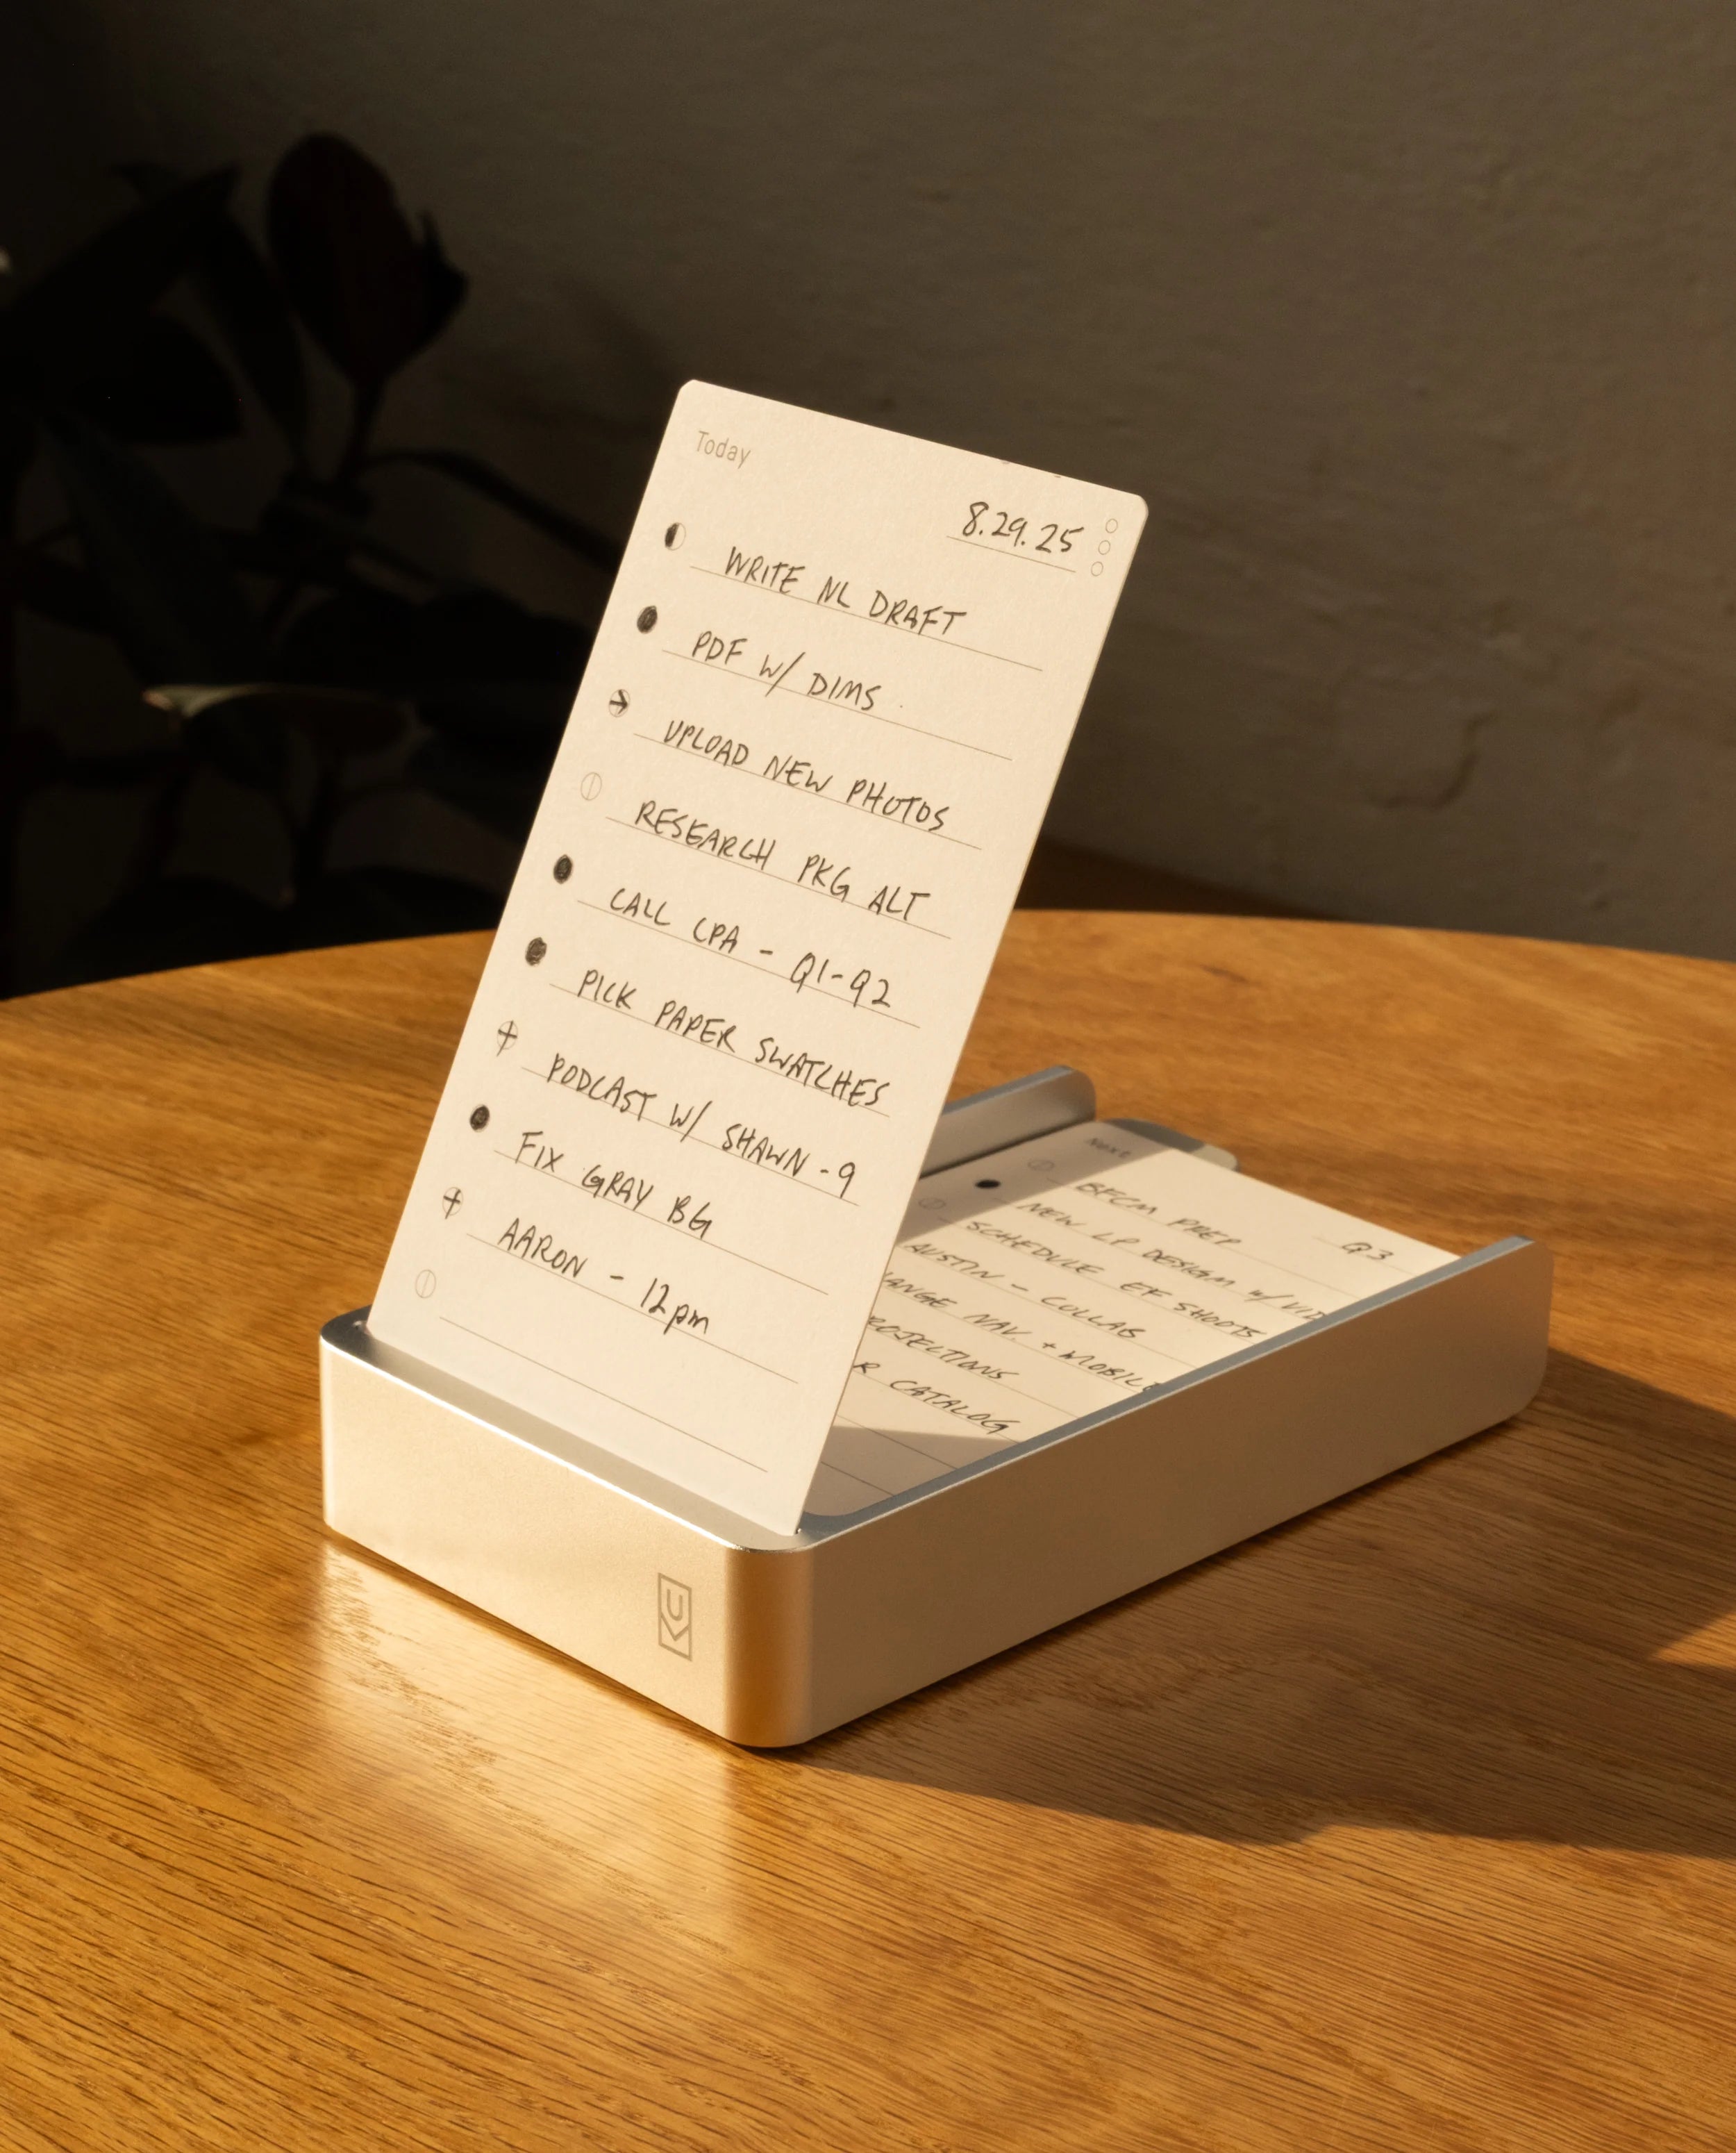 Today
8.29.25
WRITE NL DRAFT
PDF W/ DIMS
UPLOAD NEW PHOTOS
RESEARCH PKG ALT
CALL CPA - Q1-Q2
PICK PAPER SWATCHES
PODCAST W/ SHAWN - 9
FIX GRAY BG
AARON - 12pm
Next
Q3
BFCM PREP
NEW LP DESIGN w/ VID
SCHEDULE EF SHOOTS
AUSTIN - COLLAB
ANGE NAV. + MOBILE
ROJECTIONS
R CATALOG